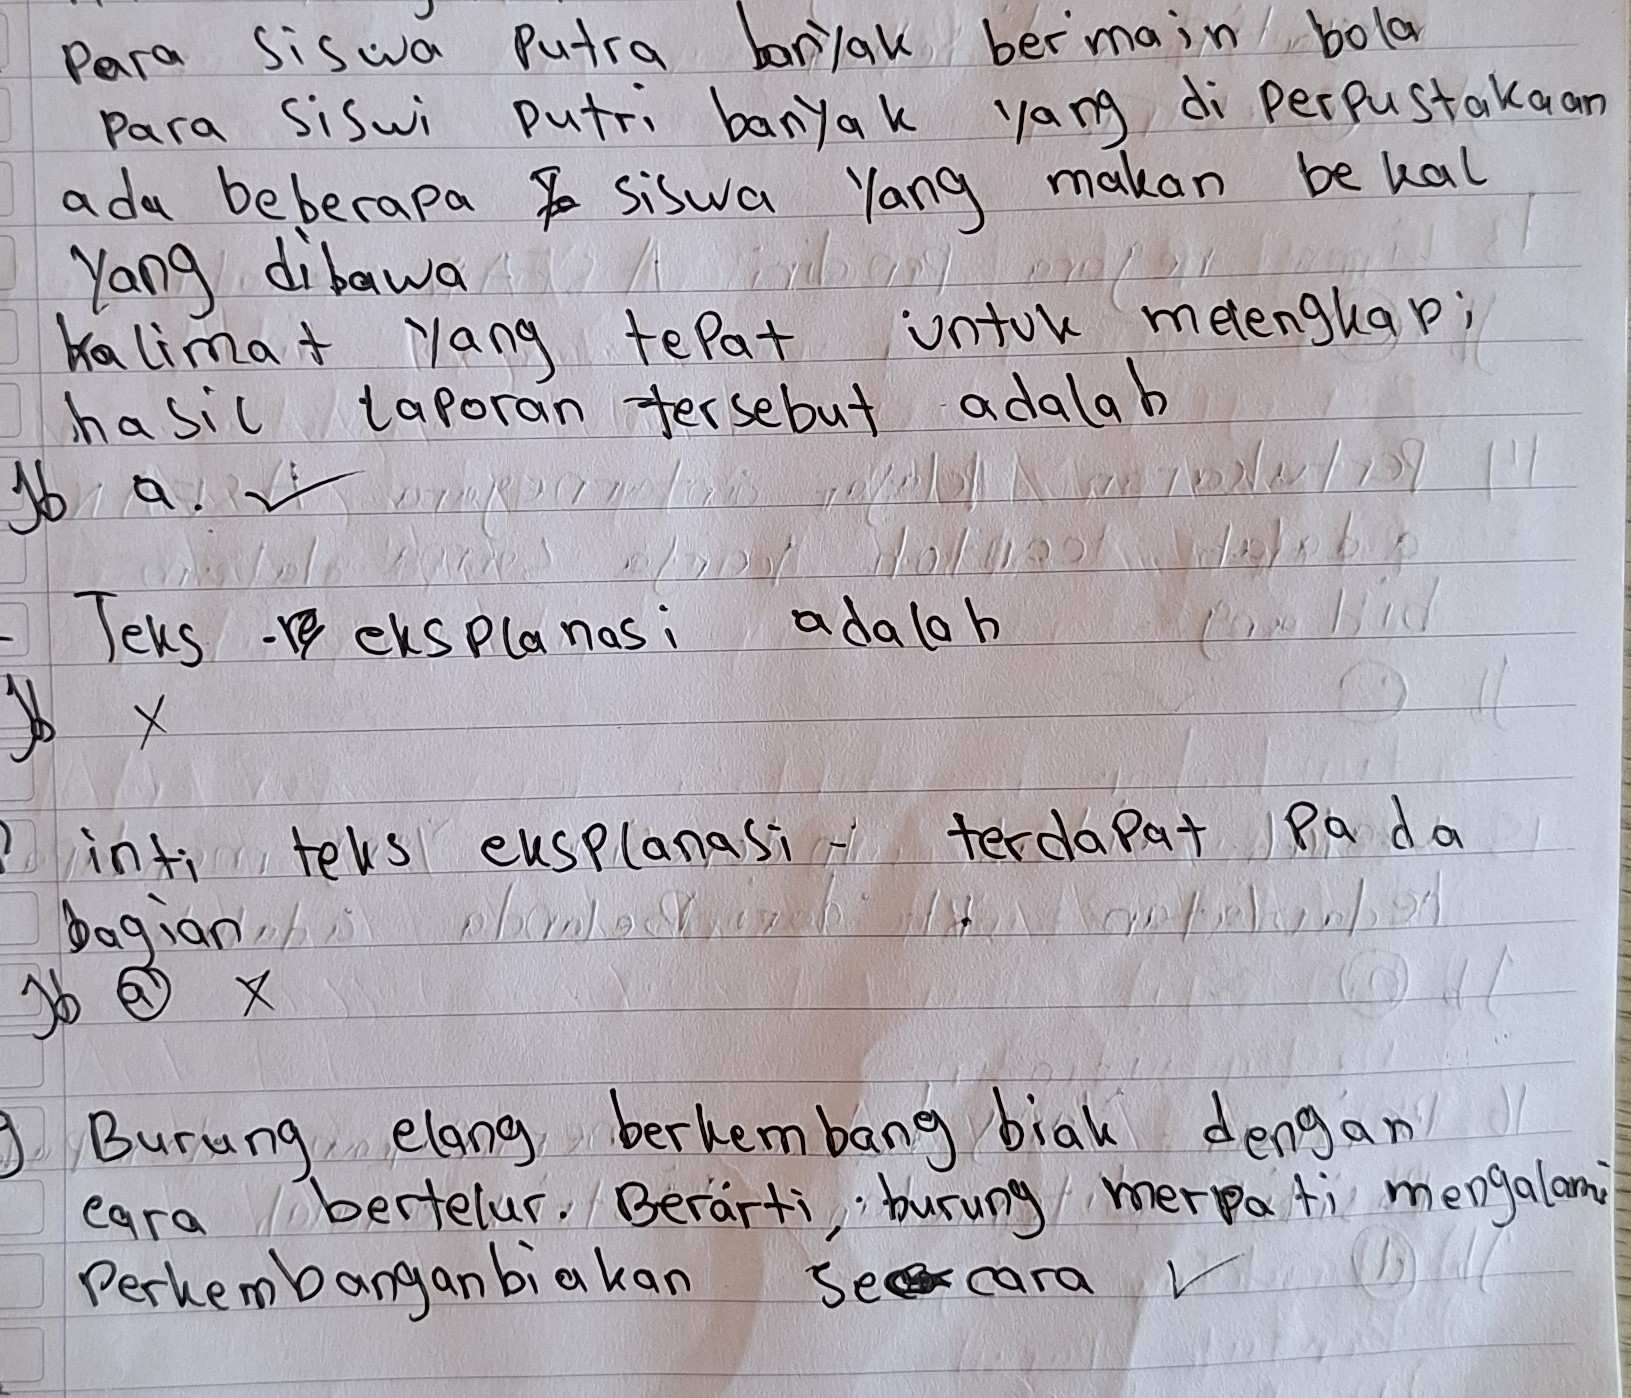 Para siswa putra banyak bermain bola
para siswi putri banyak yang di perpustakaan
ada beberapa siswa yang makan bekal
yang dibawa
kalimat yang tepat untuk melengkapi
hasil laporan tersebut adalah
Jb a. ✓
Teks eksplanasi adalah
Jb X
inti teks eksplanasi - terdapat pada
bagian
Jb a X
Burung elang berkembang biak dengan
cara bertelur. Berarti, burung merpati mengalami
Perkembanganbiakan secara ✓